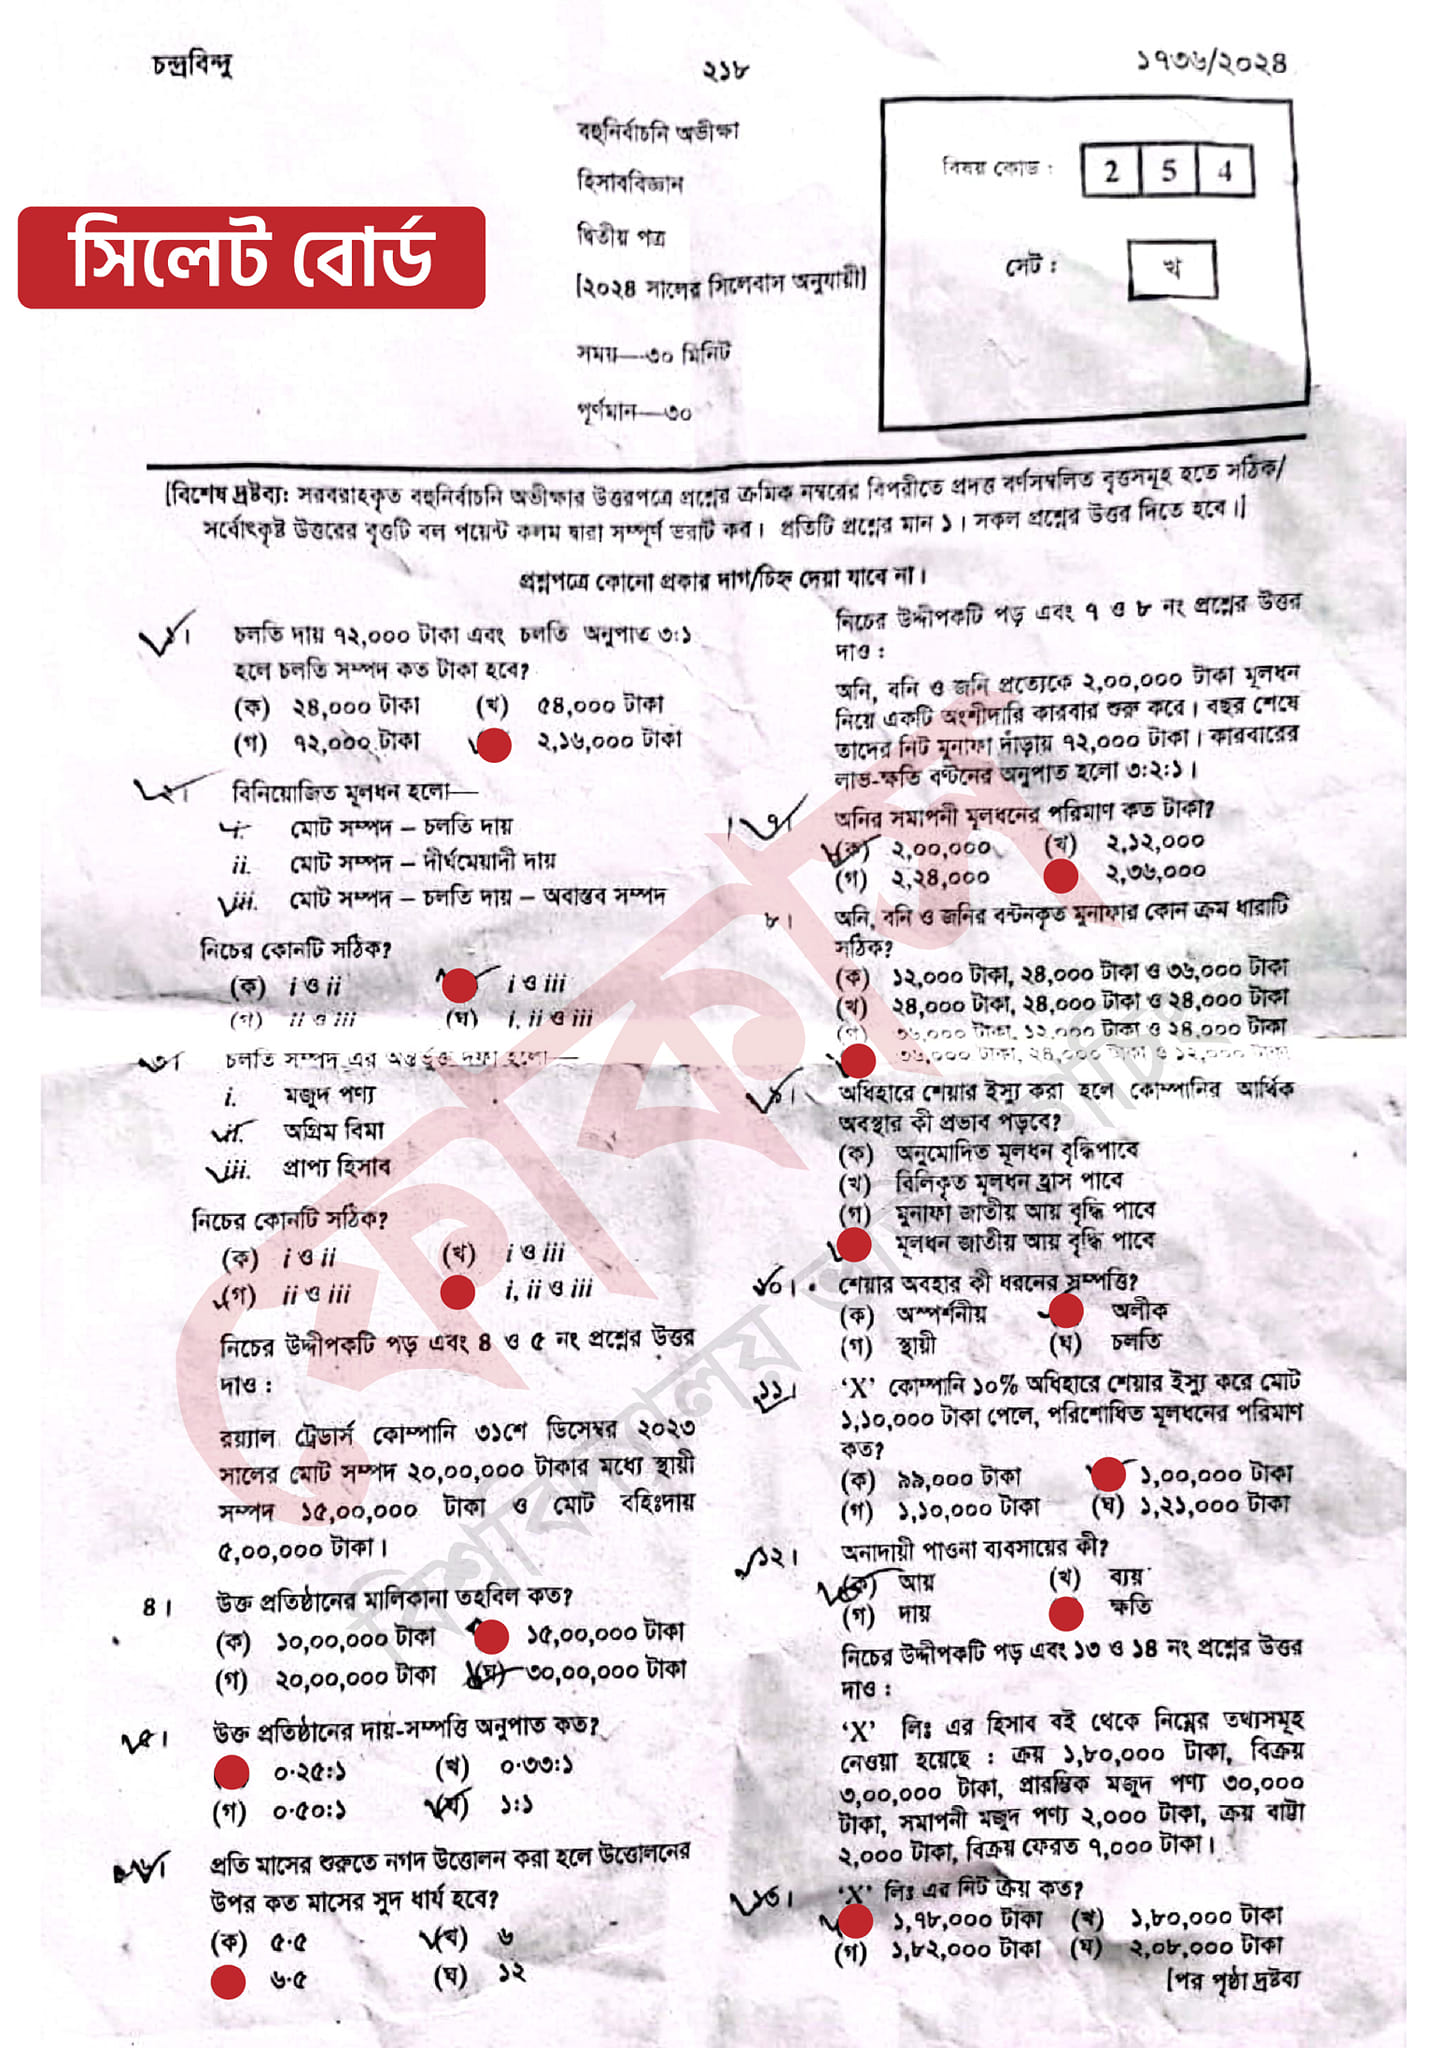 চন্দ্রবিন্দু
২১৮
১৭৩৬/২০২৪
বহুনির্বাচনি অভীক্ষা
হিসাববিজ্ঞান
দ্বিতীয় পত্র
[২০২৪ সালের সিলেবাস অনুযায়ী]
সময়—৩০ মিনিট
পূর্ণমান—৩০
বিষয় কোড : 2 5 4
সেট : খ
সিলেট বোর্ড
[বিশেষ দ্রষ্টব্য: সরবরাহকৃত বহুনির্বাচনি অভীক্ষার উত্তরপত্রে প্রশ্নের ক্রমিক নম্বরের বিপরীতে প্রদত্ত বর্ণসম্বলিত বৃত্তসমূহ হতে সঠিক/
সর্বোৎকৃষ্ট উত্তরের বৃত্তটি বল পয়েন্ট কলম দ্বারা সম্পূর্ণ ভরাট কর। প্রতিটি প্রশ্নের মান ১। সকল প্রশ্নের উত্তর দিতে হবে।]
প্রশ্নপত্রে কোনো প্রকার দাগ/চিহ্ন দেয়া যাবে না।
১। চলতি দায় ৭২,০০০ টাকা এবং চলতি অনুপাত ৩:১
হলে চলতি সম্পদ কত টাকা হবে?
(ক) ২৪,০০০ টাকা (খ) ৫৪,০০০ টাকা
(গ) ৭২,০০০ টাকা ২,১৬,০০০ টাকা
২। বিনিয়োজিত মূলধন হলো—
i. মোট সম্পদ – চলতি দায়
ii. মোট সম্পদ – দীর্ঘমেয়াদী দায়
iii. মোট সম্পদ – চলতি দায় – অবাস্তব সম্পদ
নিচের কোনটি সঠিক?
(ক) i ও ii i ও iii
(গ) ii ও iii (ঘ) i, ii ও iii
৩। চলতি সম্পদ এর অন্তর্ভুক্ত দফা হলো—
i. মজুদ পণ্য
ii. অগ্রিম বিমা
iii. প্রাপ্য হিসাব
নিচের কোনটি সঠিক?
(ক) i ও ii (খ) i ও iii
(গ) ii ও iii i, ii ও iii
নিচের উদ্দীপকটি পড় এবং ৪ ও ৫ নং প্রশ্নের উত্তর
দাও :
রয়্যাল ট্রেডার্স কোম্পানি ৩১শে ডিসেম্বর ২০২৩
সালের মোট সম্পদ ২০,০০,০০০ টাকার মধ্যে স্থায়ী
সম্পদ ১৫,০০,০০০ টাকা ও মোট বহিঃদায়
৫,০০,০০০ টাকা।
৪। উক্ত প্রতিষ্ঠানের মালিকানা তহবিল কত?
(ক) ১০,০০,০০০ টাকা ১৫,০০,০০০ টাকা
(গ) ২০,০০,০০০ টাকা (ঘ) ৩০,০০,০০০ টাকা
৫। উক্ত প্রতিষ্ঠানের দায়-সম্পত্তি অনুপাত কত?
০·২৫:১ (খ) ০·৩৩:১
(গ) ০·৫০:১ (ঘ) ১:১
৬। প্রতি মাসের শুরুতে নগদ উত্তোলন করা হলে উত্তোলনের
উপর কত মাসের সুদ ধার্য হবে?
(ক) ৫·৫ (খ) ৬
৬·৫ (ঘ) ১২
নিচের উদ্দীপকটি পড় এবং ৭ ও ৮ নং প্রশ্নের উত্তর
দাও :
অনি, বনি ও জনি প্রত্যেকে ২,০০,০০০ টাকা মূলধন
নিয়ে একটি অংশীদারি কারবার শুরু করে। বছর শেষে
তাদের নিট মুনাফা দাঁড়ায় ৭২,০০০ টাকা। কারবারের
লাভ-ক্ষতি বণ্টনের অনুপাত হলো ৩:২:১।
৭। অনির সমাপনী মূলধনের পরিমাণ কত টাকা?
(ক) ২,০০,০০০ (খ) ২,১২,০০০
(গ) ২,২৪,০০০ ২,৩৬,০০০
৮। অনি, বনি ও জনির বন্টনকৃত মুনাফার কোন ক্রম ধারাটি
সঠিক?
(ক) ১২,০০০ টাকা, ২৪,০০০ টাকা ও ৩৬,০০০ টাকা
(খ) ২৪,০০০ টাকা, ২৪,০০০ টাকা ও ২৪,০০০ টাকা
(গ) ৩৬,০০০ টাকা, ১২,০০০ টাকা ও ২৪,০০০ টাকা
৩৬,০০০ টাকা, ২৪,০০০ টাকা ও ১২,০০০ টাকা
৯। অধিহারে শেয়ার ইস্যু করা হলে কোম্পানির আর্থিক
অবস্থার কী প্রভাব পড়বে?
(ক) অনুমোদিত মূলধন বৃদ্ধিপাবে
(খ) বিলিকৃত মূলধন হ্রাস পাবে
(গ) মুনাফা জাতীয় আয় বৃদ্ধি পাবে
মূলধন জাতীয় আয় বৃদ্ধি পাবে
১০। শেয়ার অবহার কী ধরনের সম্পত্তি?
(ক) অস্পর্শনীয় অলীক
(গ) স্থায়ী (ঘ) চলতি
১১। ‘X’ কোম্পানি ১০% অধিহারে শেয়ার ইস্যু করে মোট
১,১০,০০০ টাকা পেলে, পরিশোধিত মূলধনের পরিমাণ
কত?
(ক) ৯৯,০০০ টাকা ১,০০,০০০ টাকা
(গ) ১,১০,০০০ টাকা (ঘ) ১,২১,০০০ টাকা
১২। অনাদায়ী পাওনা ব্যবসায়ের কী?
(ক) আয় (খ) ব্যয়
(গ) দায় ক্ষতি
নিচের উদ্দীপকটি পড় এবং ১৩ ও ১৪ নং প্রশ্নের উত্তর
দাও :
‘X’ লিঃ এর হিসাব বই থেকে নিম্নের তথ্যসমূহ
নেওয়া হয়েছে : ক্রয় ১,৮০,০০০ টাকা, বিক্রয়
৩,০০,০০০ টাকা, প্রারম্ভিক মজুদ পণ্য ৩০,০০০
টাকা, সমাপনী মজুদ পণ্য ২,০০০ টাকা, ক্রয় বাট্টা
২,০০০ টাকা, বিক্রয় ফেরত ৭,০০০ টাকা।
১৩। ‘X’ লিঃ এর নিট ক্রয় কত?
১,৭৮,০০০ টাকা (খ) ১,৮০,০০০ টাকা
(গ) ১,৮২,০০০ টাকা (ঘ) ২,০৮,০০০ টাকা
[পর পৃষ্ঠা দ্রষ্টব্য